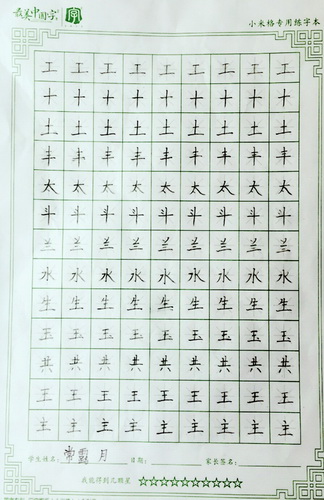 最美中国字 字
小米格专用练字本
工 工 工 工 工 工 工 工 工
十 十 十 十 十 十 十 十 十
土 土 土 土 土 土 土 土 土
丰 丰 丰 丰 丰 丰 丰 丰 丰
太 太 太 太 太 太 太 太 太
斗 斗 斗 斗 斗 斗 斗 斗 斗
兰 兰 兰 兰 兰 兰 兰 兰 兰
水 水 水 水 水 水 水 水 水
生 生 生 生 生 生 生 生 生
玉 玉 玉 玉 玉 玉 玉 玉 玉
共 共 共 共 共 共 共 共 共
王 王 王 王 王 王 王 王 王
主 主 主 主 主 主 主 主 主
学生姓名: 常露月 日期: 家长签名:
我能得到几颗星 ☆☆☆☆☆☆☆☆☆☆